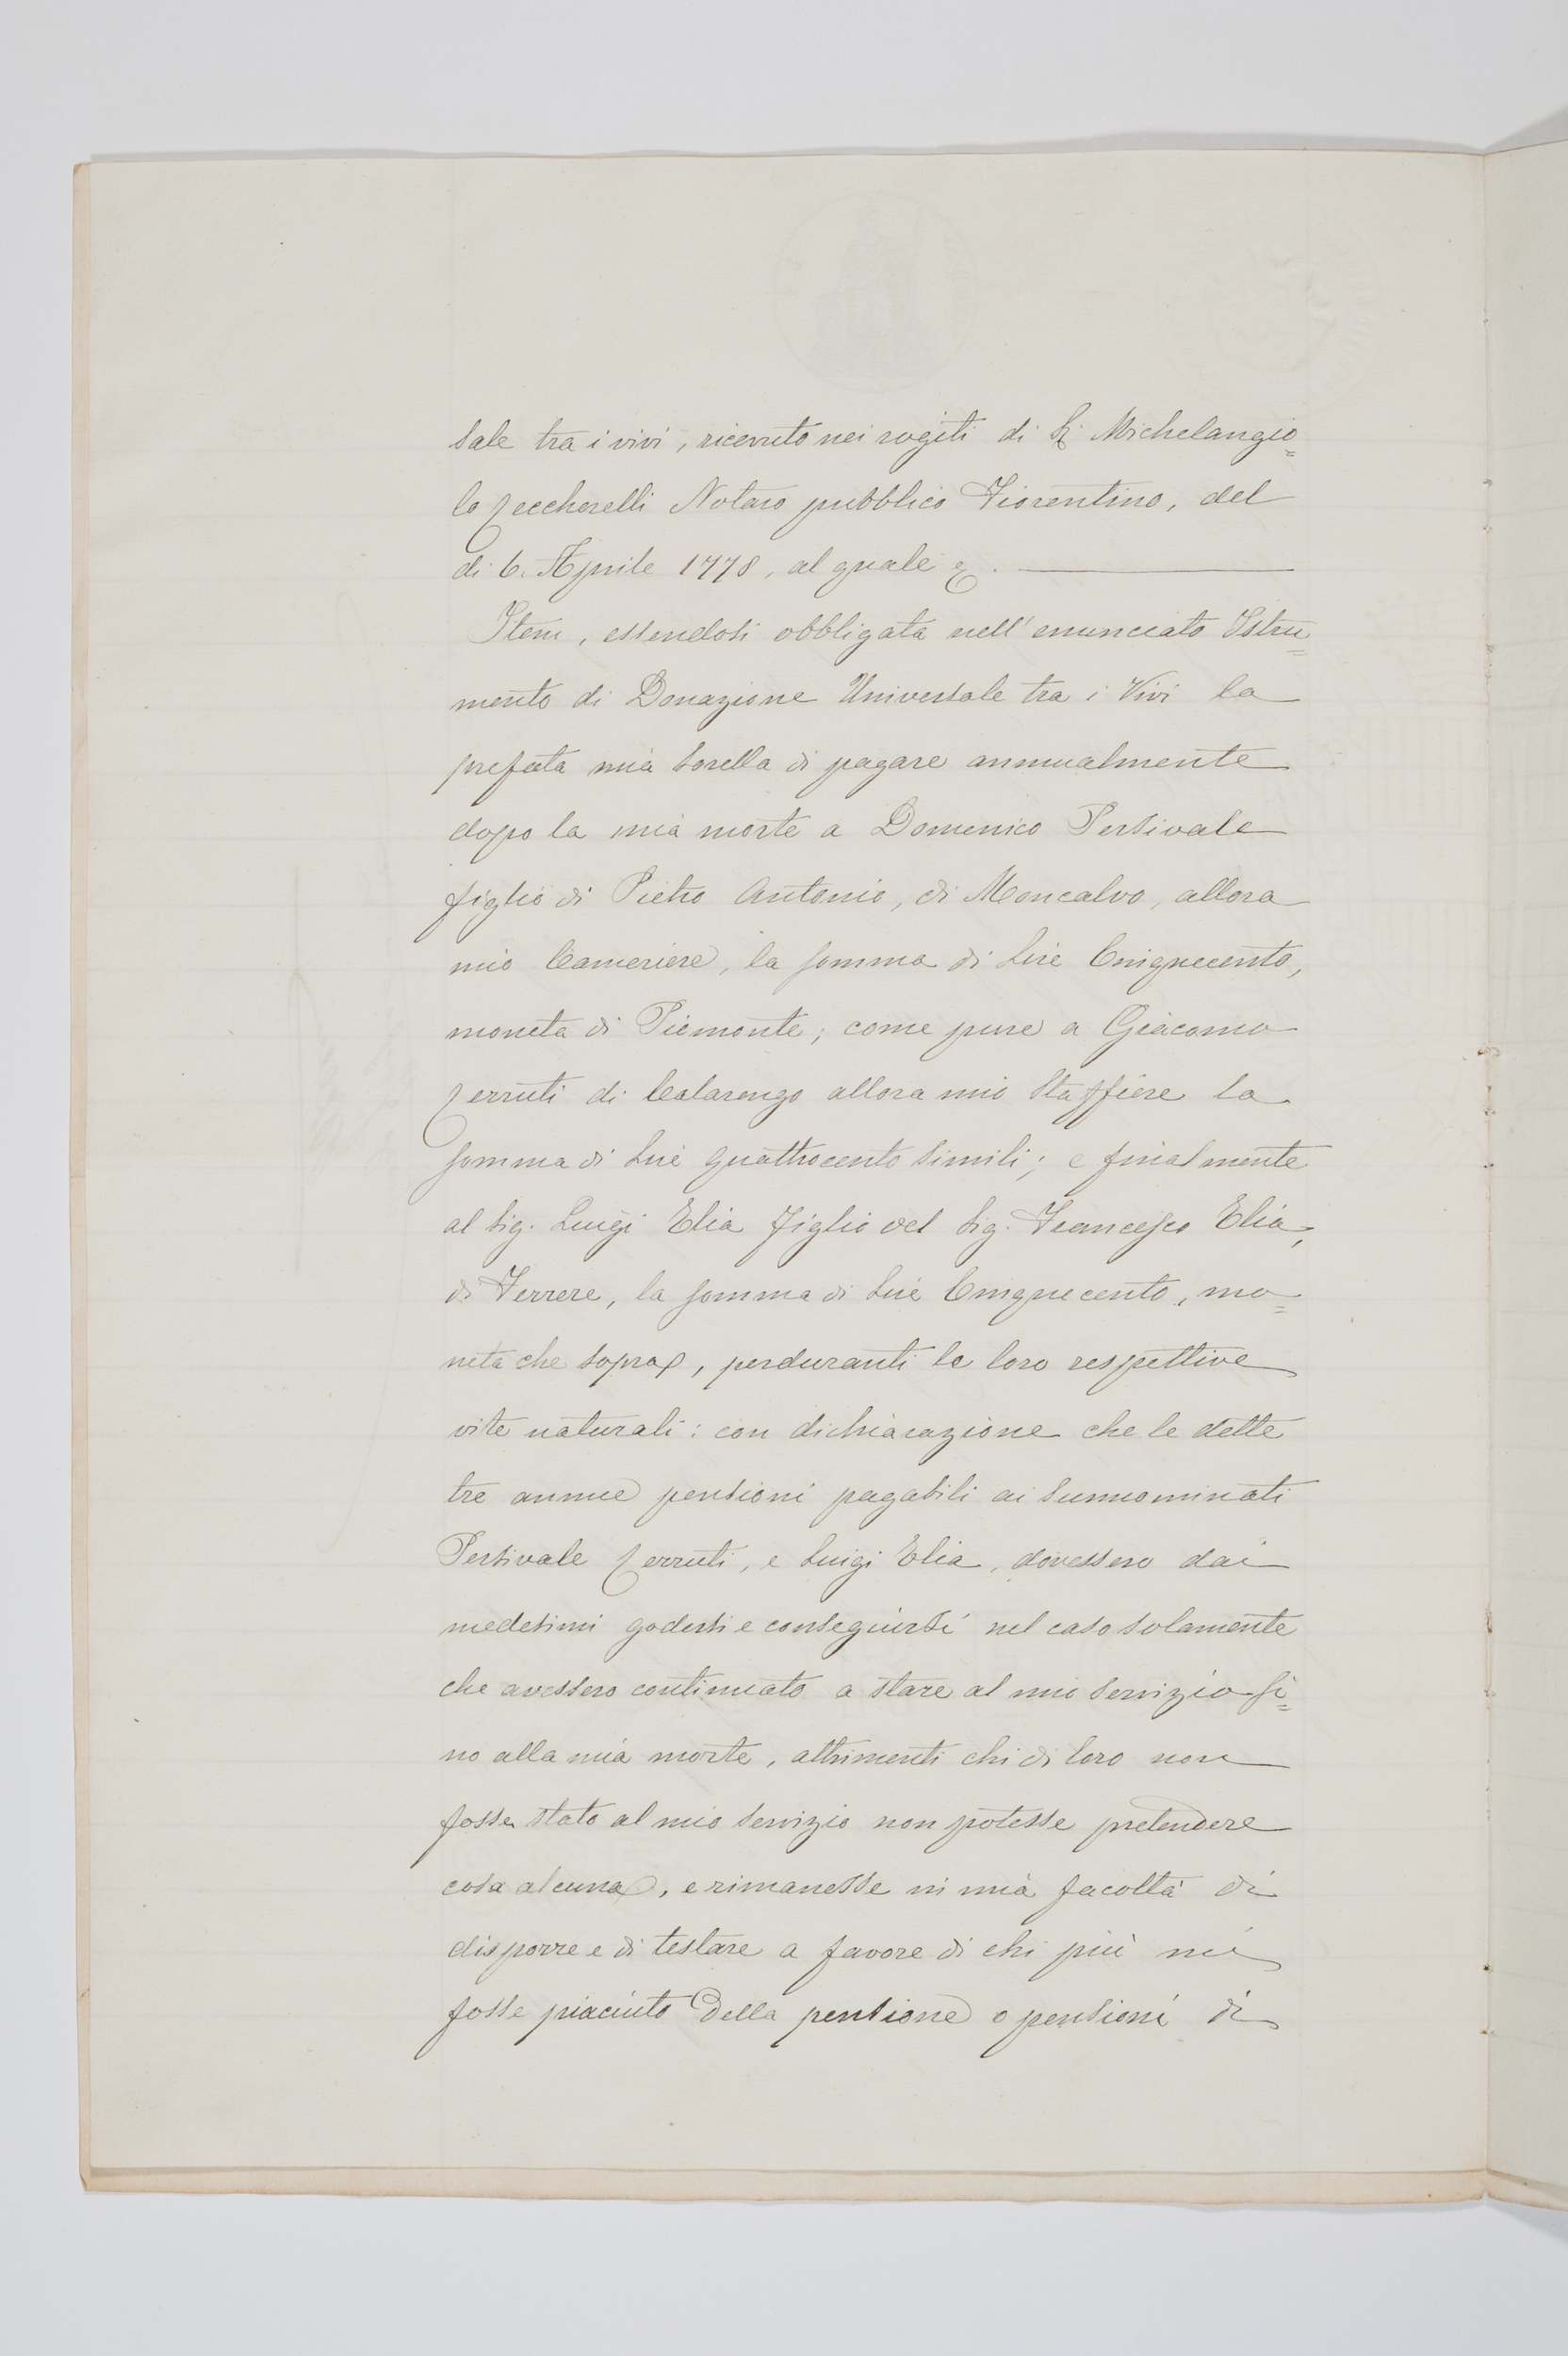 sale tra i vivi, ricevuto nei rogiti di Sr. Michelangio=
lo Zeccherelli Notaro pubblico Fiorentino, del
dì 6. Aprile 1778, al quale &.
Item, essendosi obbligata nell' enunciato Istru=
mento di Donazione Universale tra i Vivi la
prefata mia sorella di pagare annualmente
dopo la mia morte a Domenico Persivale
figlio di Pietro Antonio, di Moncalvo, allora
mio Cameriere, la somma di Lire Cinquecento,
moneta di Piemonte; come pure a Giacomo
Zerruti di Calarengo allora mio Staffiere la
somma di Lire quattrocento simili; e finalmente
al Sig. Luigi Elia figlio del Sig. Francesco Elia,
di Ferrere, la somma di Lire Cinquecento, mo=
neta che sopra, perduranti le loro respettive
vite naturali: con dichiarazione che le dette
tre annue pensioni pagabili ai sunnominati
Persivale Zerruti, e Luigi Elia, dovessero dai
medesimi godersi e conseguirsi nel caso solamente
che avessero continuato a stare al mio servizio fi=
no alla mia morte, altrimenti chi di loro non
fosse stato al mio servizio non potesse pretendere
cosa alcuna, e rimanesse in mia facoltà di
disporre e di testare a favore di chi più mi
fosse piaciuto della pensione o pensioni di